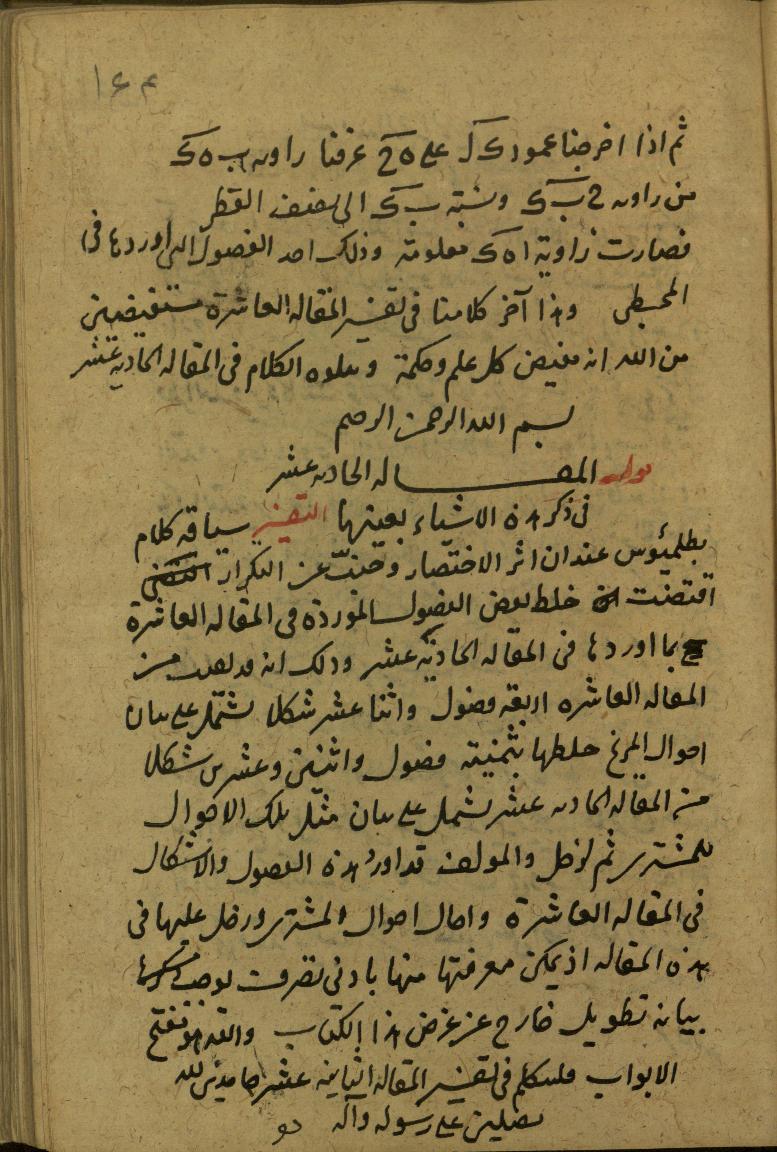 ١٤٤
ثم اذا اخرجنا عمود ک ل علی ه ح عرفنا زاویه ب ه ک
من زاویه ح ب ک ونسبة ب ک الی نصف القطر
فصارت زاویة ا ه ک معلومة وذلک احد الفصول التی اوردها فی
المجسطی وهذا آخر کلامنا فی تفسیر المقاله العاشرة مستفیضین
من الله انه مفیض کل علم وحکمة ویتلوه الکلام فی المقاله الحادیه عشر
بسم الله الرحمن الرحیم
قوله المقاله الحادیه عشر
فی ذکر هذه الاشیاء بعینها التفسیر سیاقه کلام
بطلمیوس عند ان اثر الاختصار وتجنب عن التکرار
اقتضت خلط بعض الفصول الموردة فی المقاله العاشرة
بما اوردها فی المقاله الحادیة عشر وذلک انه من
المقاله العاشره اربعه فصول واثنا عشر شکلا یشتمل علی بیان
احوال المریخ خلطها بثمنیة فصول واثنین وعشرین شکلا
من المقاله الحادیه عشر یشمل علی بیان مثل تلک الاحوال
للمشتری ثم لزحل والمولف قد اورد هذه الفصول والاشکال
فی المقاله العاشرة واحال احوال المشتری وزحل علیها فی
هذه المقاله اذ یمکن معرفتها منها بادنی تصرف
بیانه تطویل خارج عن غرض هذا الکتاب والله هو مفتح
الابواب فلنتکلم فی تفسیر المقاله الثانیه عشر حامدین لله
مصلین علی رسوله وآله